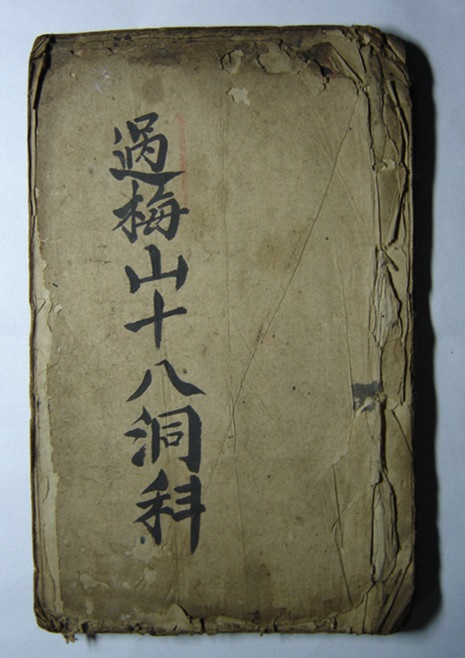 過梅山十八洞科